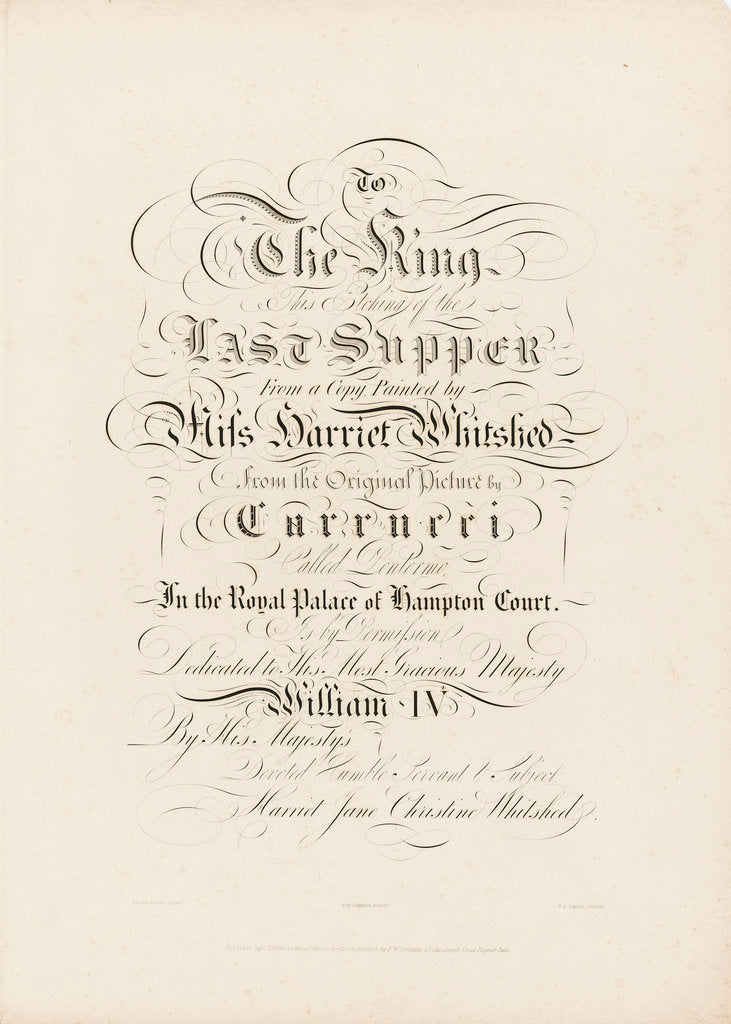 To
The King
This Etching of the
LAST SUPPER
From a Copy Painted by
Miſs Harriet Whitshed
from the Original Picture by
Carrucci
Called Pontormo
In the Royal Palace of Hampton Court.
Is by Permiſsion
Dedicated to His Most Gracious Majesty
William IV
By His Majesty's
Devoted Humble Servant & Subject
Harriet Jane Christine Whitshed.